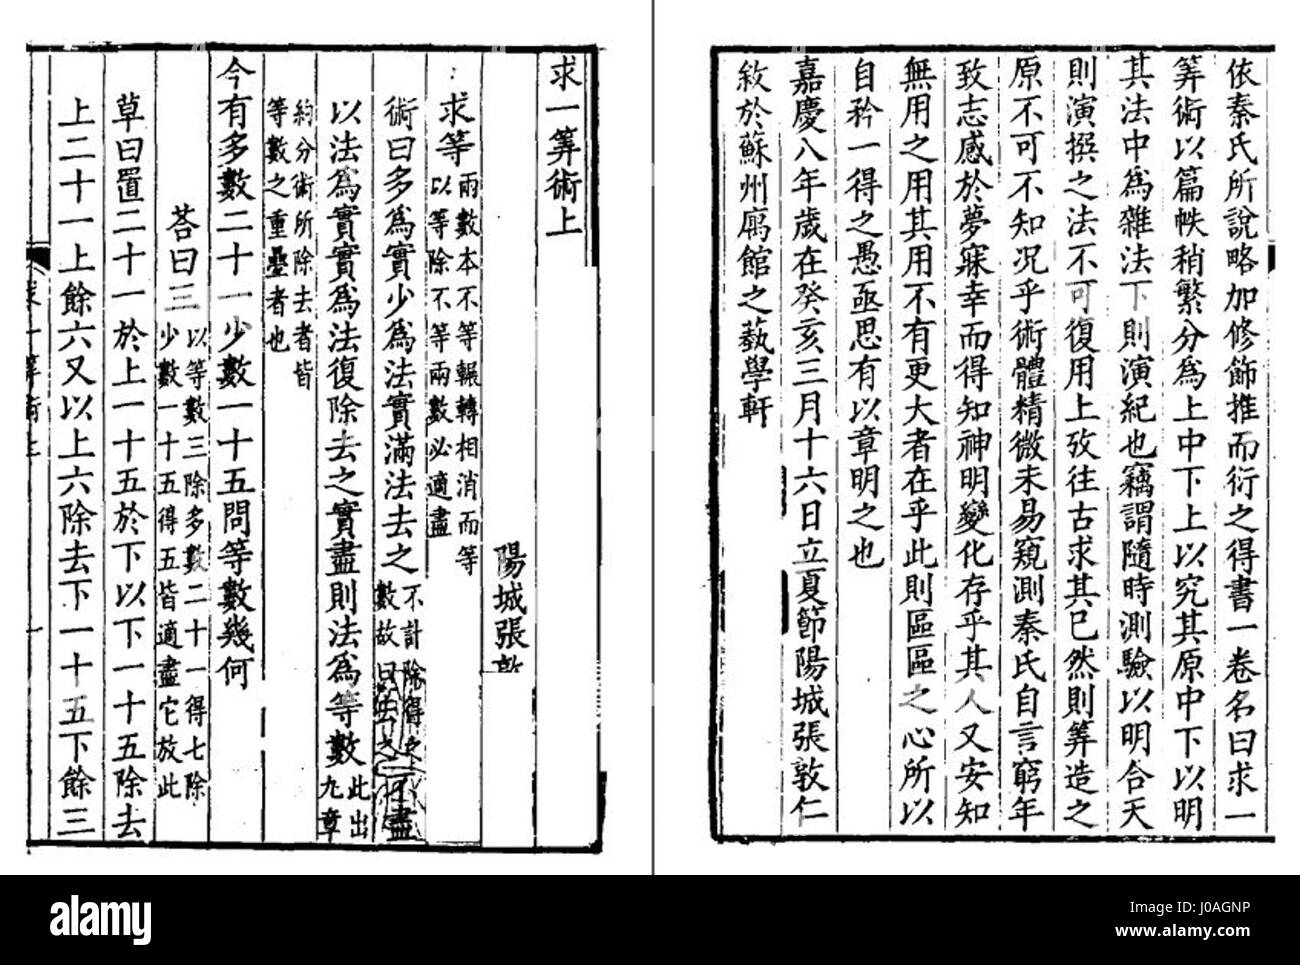 依秦氏所說略加修飾推而衍之得書一卷名曰求一
筭術以篇帙稍繁分爲上中下上以究其原中下以明
其法中爲雜法下則演紀也竊謂隨時測驗以明合天
則演撰之法不可復用上攷往古求其已然則筭造之
原不可不知況乎術體精微未易窺測秦氏自言窮年
致志感於夢寐幸而得知神明變化存乎其人又安知
無用之用其用不有更大者在乎此則區區之心所以
自矜一得之愚亟思有以章明之也
嘉慶八年歲在癸亥三月十六日立夏節陽城張敦仁
敘於蘇州廨館之蓺學軒
求一筭術上
陽城張敦
求等
兩數本不等輾轉相消而等
以等除不等兩數必適盡
術曰多爲實少爲法實滿法去之
不計除得之
數故曰去之不盡
以法爲實實爲法復除去之實盡則法爲等數
此出
九章
約分術所除去者皆
等數之重疊者也
今有多數二十一少數一十五問等數幾何
荅曰三
以等數三除多數二十一得七除
少數一十五得五皆適盡它放此
草曰置二十一於上一十五於下以下一十五除去
上二十一上餘六又以上六除去下一十五下餘三
求一筭術上
一
alamy
alamy
Image ID: J0AGNP
www.alamy.com